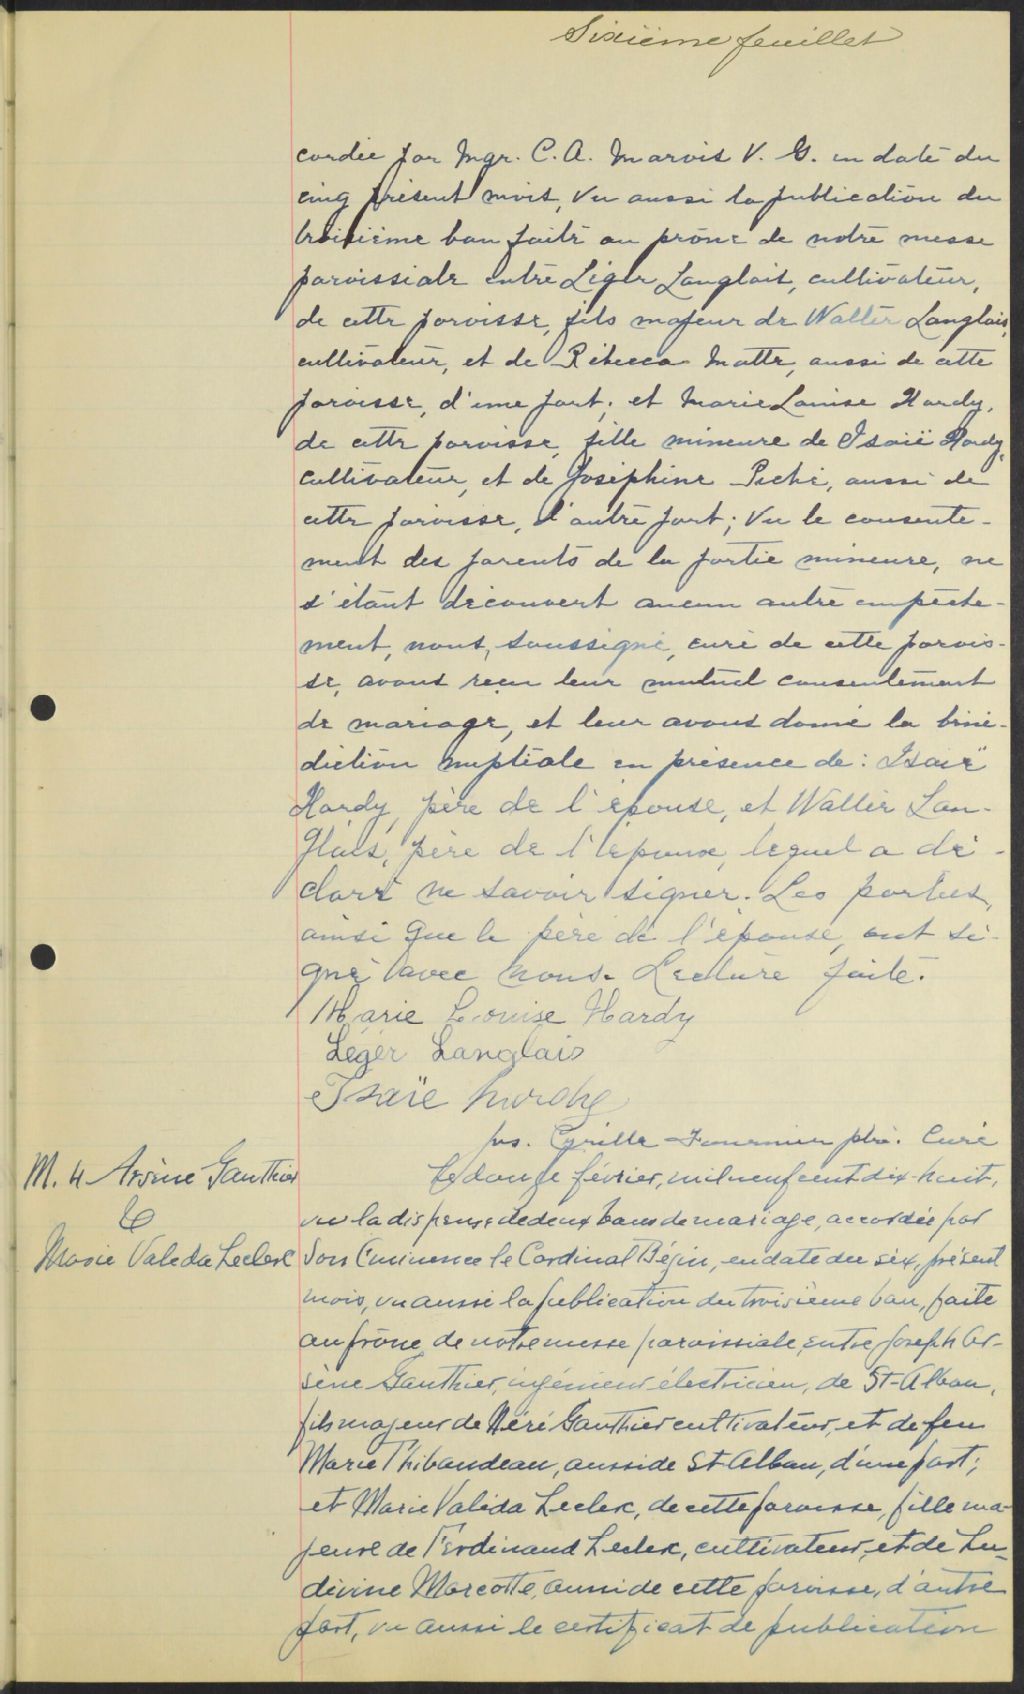 Sixième feuillet
cordée par Mgr. C. A. Marois V. G. en date du
cinq présent mois, Vu aussi la publication du
troisième ban faite au prône de notre messe
paroissiale entre Léger Langlois, cultivateur,
de cette paroisse, fils majeur de Walter Langlais,
cultivateur, et de Rébecca Matte, aussi de cette
paroisse, d'une part; et Marie Louise Hardy,
de cette paroisse, fille mineure de Isaïe Hardy,
cultivateur, et de Joséphine Piché, aussi de
cette paroisse, d'autre part; Vu le consente-
ment des parents de la partie mineure, ne
s'étant découvert aucun autre empêche-
ment, nous, soussigné, curé de cette parois-
se, avons reçu leur mutuel consentement
de mariage, et leur avons donné la béné-
diction nuptiale en présence de: Isaïe
Hardy, père de l'épouse, et Walter Lan-
glais, père de l'époux, lequel a dé-
claré ne savoir signer. Les parties,
ainsi que le père de l'épouse, ont si-
gné avec nous. Lecture faite.
Marie Louise Hardy
Léger Langlais
Isaïe
Jos. Cyrille Fournier ptre. Curé
M. 4 Arsène Gauthier
&
Marie Valeda Leclerc
Le douze février, mil neuf cent dix-huit,
vu la dispense de deux bans de mariage, accordée par
Son Eminence le Cardinal Bégin, en date du six, présent
mois, vu aussi la publication du troisième ban, faite
au prône de notre messe paroissiale, entre Joseph Ar-
sène Gauthier, ingénieur électricien, de St-Alban,
fils majeur de Néré Gauthier cultivateur, et de feu
Marie Thibaudeau, aussi de St Alban, d'une part;
et Marie Valéda Leclerc, de cette paroisse, fille ma-
jeure de Ferdinand Leclerc, cultivateur, et de Lu-
divine Marcotte, aussi de cette paroisse, d'autre
part, vu aussi le certificat de publication